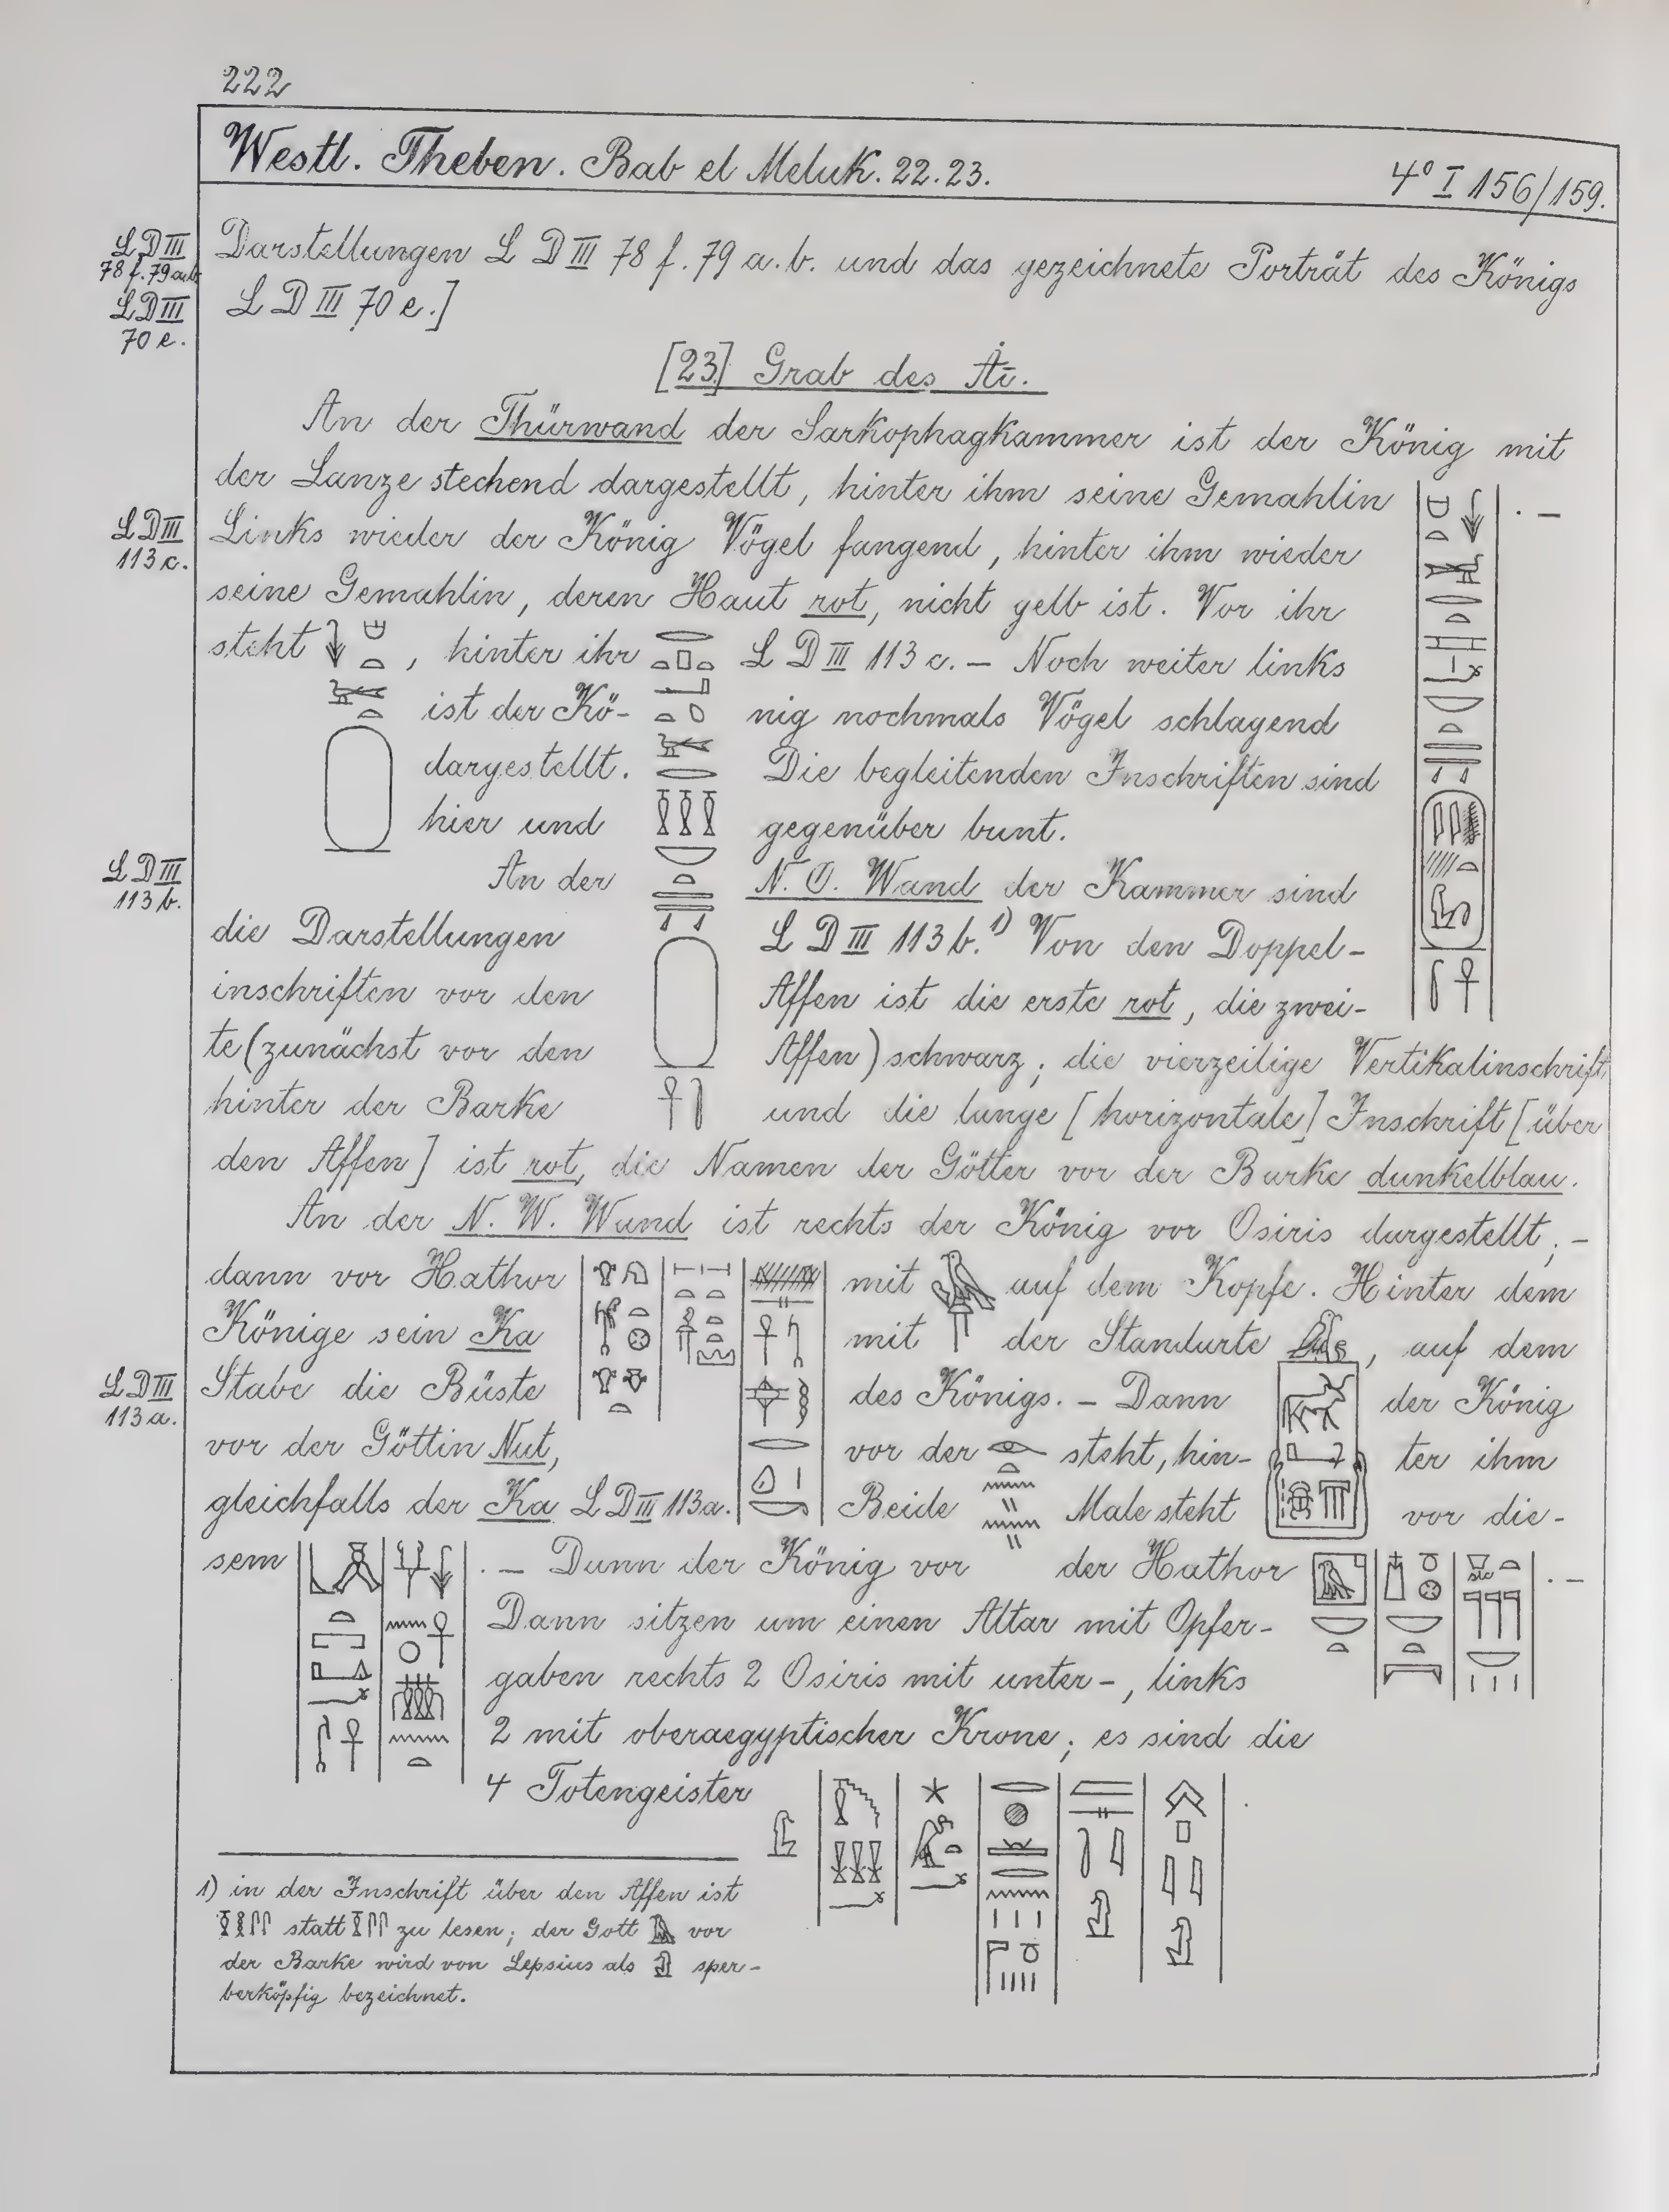 222
Westl. Theben. Bab el Meluk. 22.23.
4° I 156/159.
L D III
78 f. 79 a.b.
L D III
70 e.
Darstellungen L D III 78 f. 79 a. b. und das gezeichnete Porträt des Königs
L D III 70 e.]
[23] Grab des
An der Thürwand der Sarkophagkammer ist der König mit
der Lanze stechend dargestellt, hinter ihm seine Gemahlin . –
L D III
113 c.
Links wieder der König Vögel fangend, hinter ihm wieder
seine Gemahlin, deren Haut rot, nicht gelb ist. Vor ihr
steht , hinter ihr L D III 113 c. – Noch weiter links
ist der Kö- nig nochmals Vögel schlagend
dargestellt. Die begleitenden Inschriften sind
hier und gegenüber bunt.
L D III
113 b.
An der N. O. Wand der Kammer sind
die Darstellungen L D III 113 b.¹) Von den Doppel-
inschriften vor den Affen ist die erste rot, die zwei-
te (zunächst vor den Affen) schwarz; die vierzeilige Vertikalinschrift
hinter der Barke und die lange [horizontale] Inschrift [über
den Affen] ist rot, die Namen der Götter vor der Barke dunkelblau.
An der N. W. Wand ist rechts der König vor Osiris dargestellt; –
dann vor Hathor mit auf dem Kopfe. Hinter dem
Könige sein Ka mit der Standarte , auf dem
L D III
113 a.
Stabe die Büste des Königs. – Dann der König
vor der Göttin Nut, vor der steht, hin- ter ihm
gleichfalls der Ka L D III 113 a. Beide Male steht vor die-
sem . – Dann der König vor der Hathor . –
Dann sitzen um einen Altar mit Opfer-
gaben rechts 2 Osiris mit unter-, links
2 mit oberaegyptischer Krone; es sind die
4 Totengeister
1) in der Inschrift über den Affen ist
statt zu lesen; der Gott vor
der Barke wird von Lepsius als sper-
berköpfig bezeichnet.